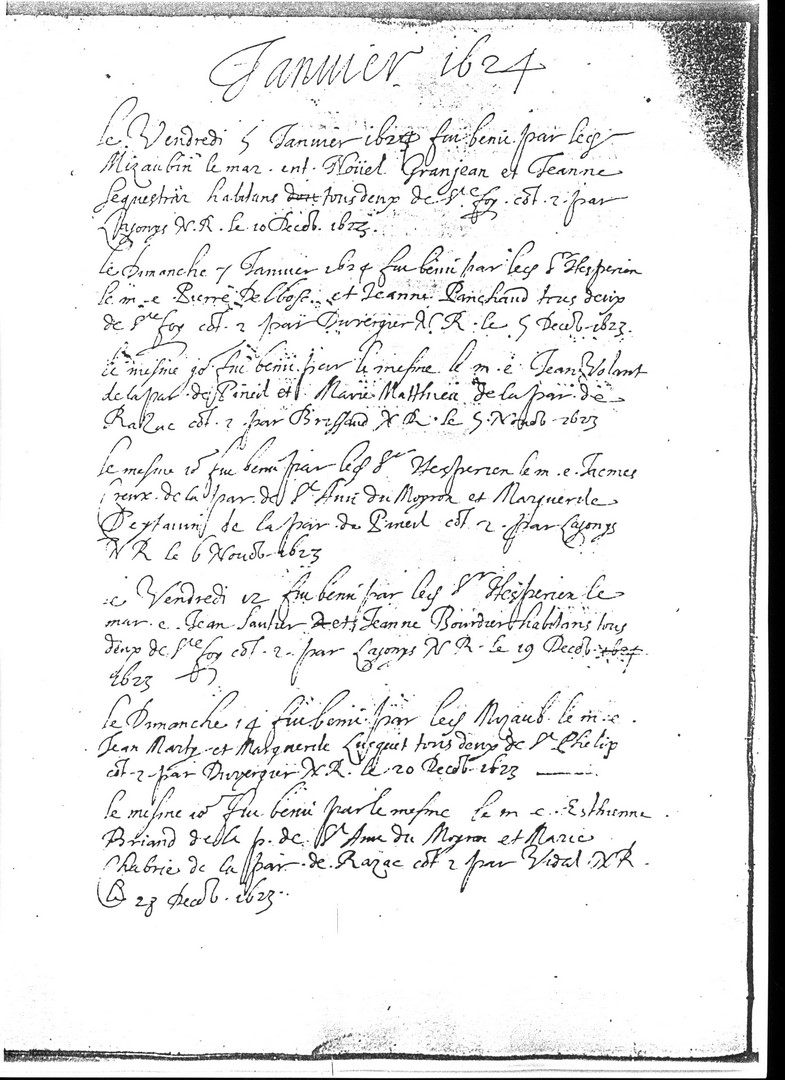 Januier 1624
le Vendredi 5 Januier 1624 fut beni par le sr
Mizaubin le mar. ent. Noüel Granjean et Jeanne
Sequestrix habitans dud. tous deux de Ste foy. cot. 2. par
Lajonys N.R. le 10 Decēb. 1623.
le Dimanche 7 Januier 1624 fut beni par le sr Hesperien
le m. e Pierre Delbosc et Jeanne Panchaud tous deux
de Ste foy cot. 2 par Duvergier N.R. le 5 Decēb. 1623.
le mesme jo. fut beni par le mesme le m. e. Jean Volant
de la par. de Pineil et Marie Matthieu de la par. de
Razac cot. 2 par Brissaud N.R. le 5 Nouēb 1623
le mesme io. fut beni par le sr Hesperien le m. e. Jacmes
Creux de la par. de St Auii du Moyron et Marguerite
Peytauin de la par. de Pineil cot. 2. par Lajonys
N R le 6 Nouēb. 1623
le Vendredi 12 fut beni par le sr Hesperien le
mar. e. Jean Sautier et Jeanne Bourdier habitans tous
deux de Ste foy cot. 2. par Lajonys N R. le 19 Decēb. 1624
1623
le Dimanche 14 fut beni par le sr Mizaub. le m. e.
Jean Marty et Marguerite Lusquet tous deux de St Phelip
cot. 2. par Duvergier N.R. le 20 Decēb. 1623
le mesme io. fut beni par le mesme le m. e. Esthienne
Briand de la p. de St Auii du Moyron et Marie
Chabrie de la par. de Razac cot 2 par Vidal N R.
le 23 Decēb. 1623.